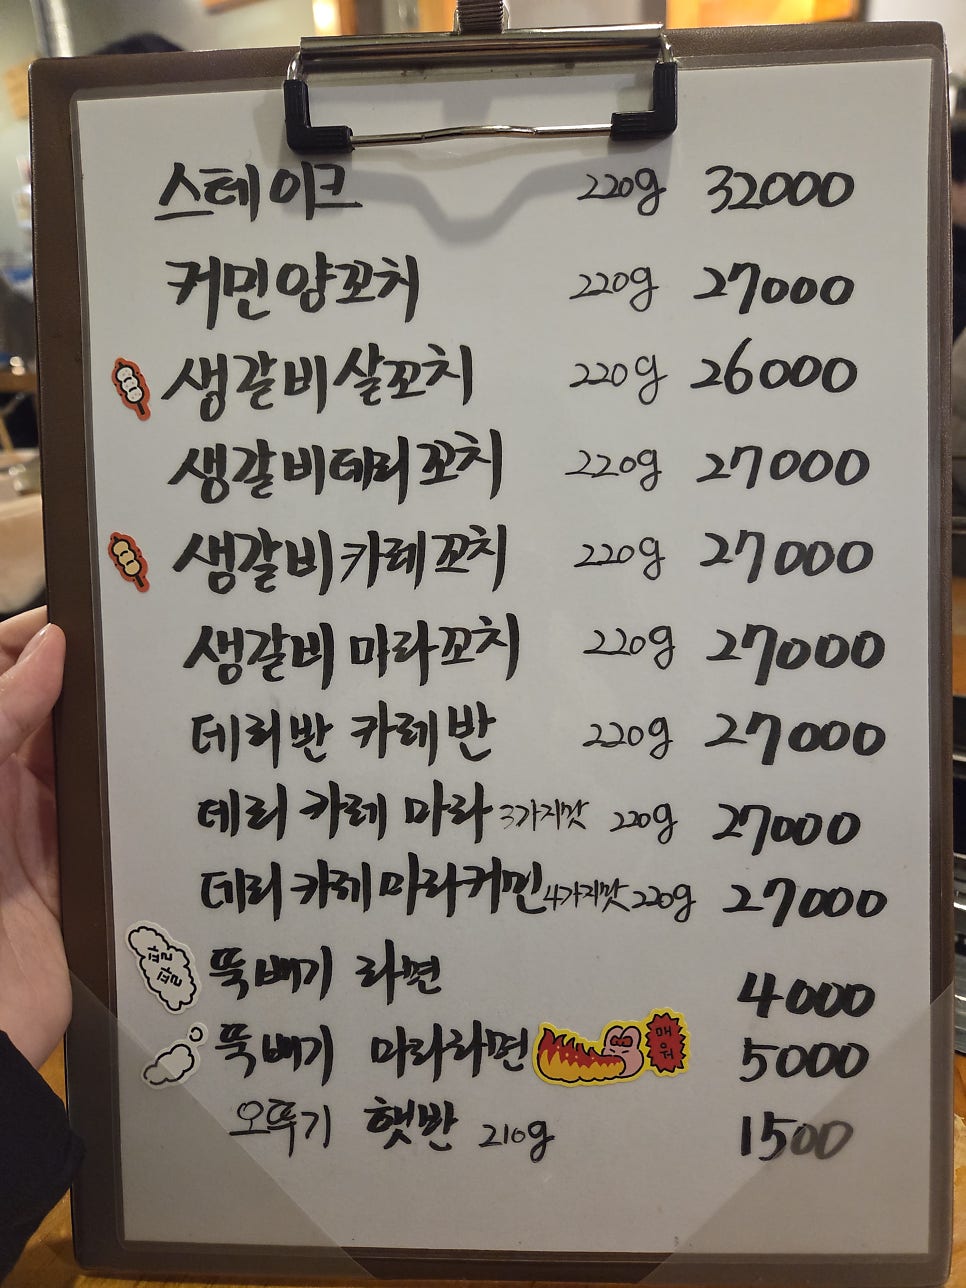 스테이크 220g 32000
커민양꼬치 220g 27000
생갈비살꼬치 220g 26000
생갈비데리꼬치 220g 27000
생갈비카레꼬치 220g 27000
생갈비마라꼬치 220g 27000
데리반 카레반 220g 27000
데리 카레 마라 3가지맛 220g 27000
데리카레마라커민4가지맛 220g 27000
뚝배기 라면 4000
뚝배기 마라라면 매워 5000
오뚜기 햇반 210g 1500